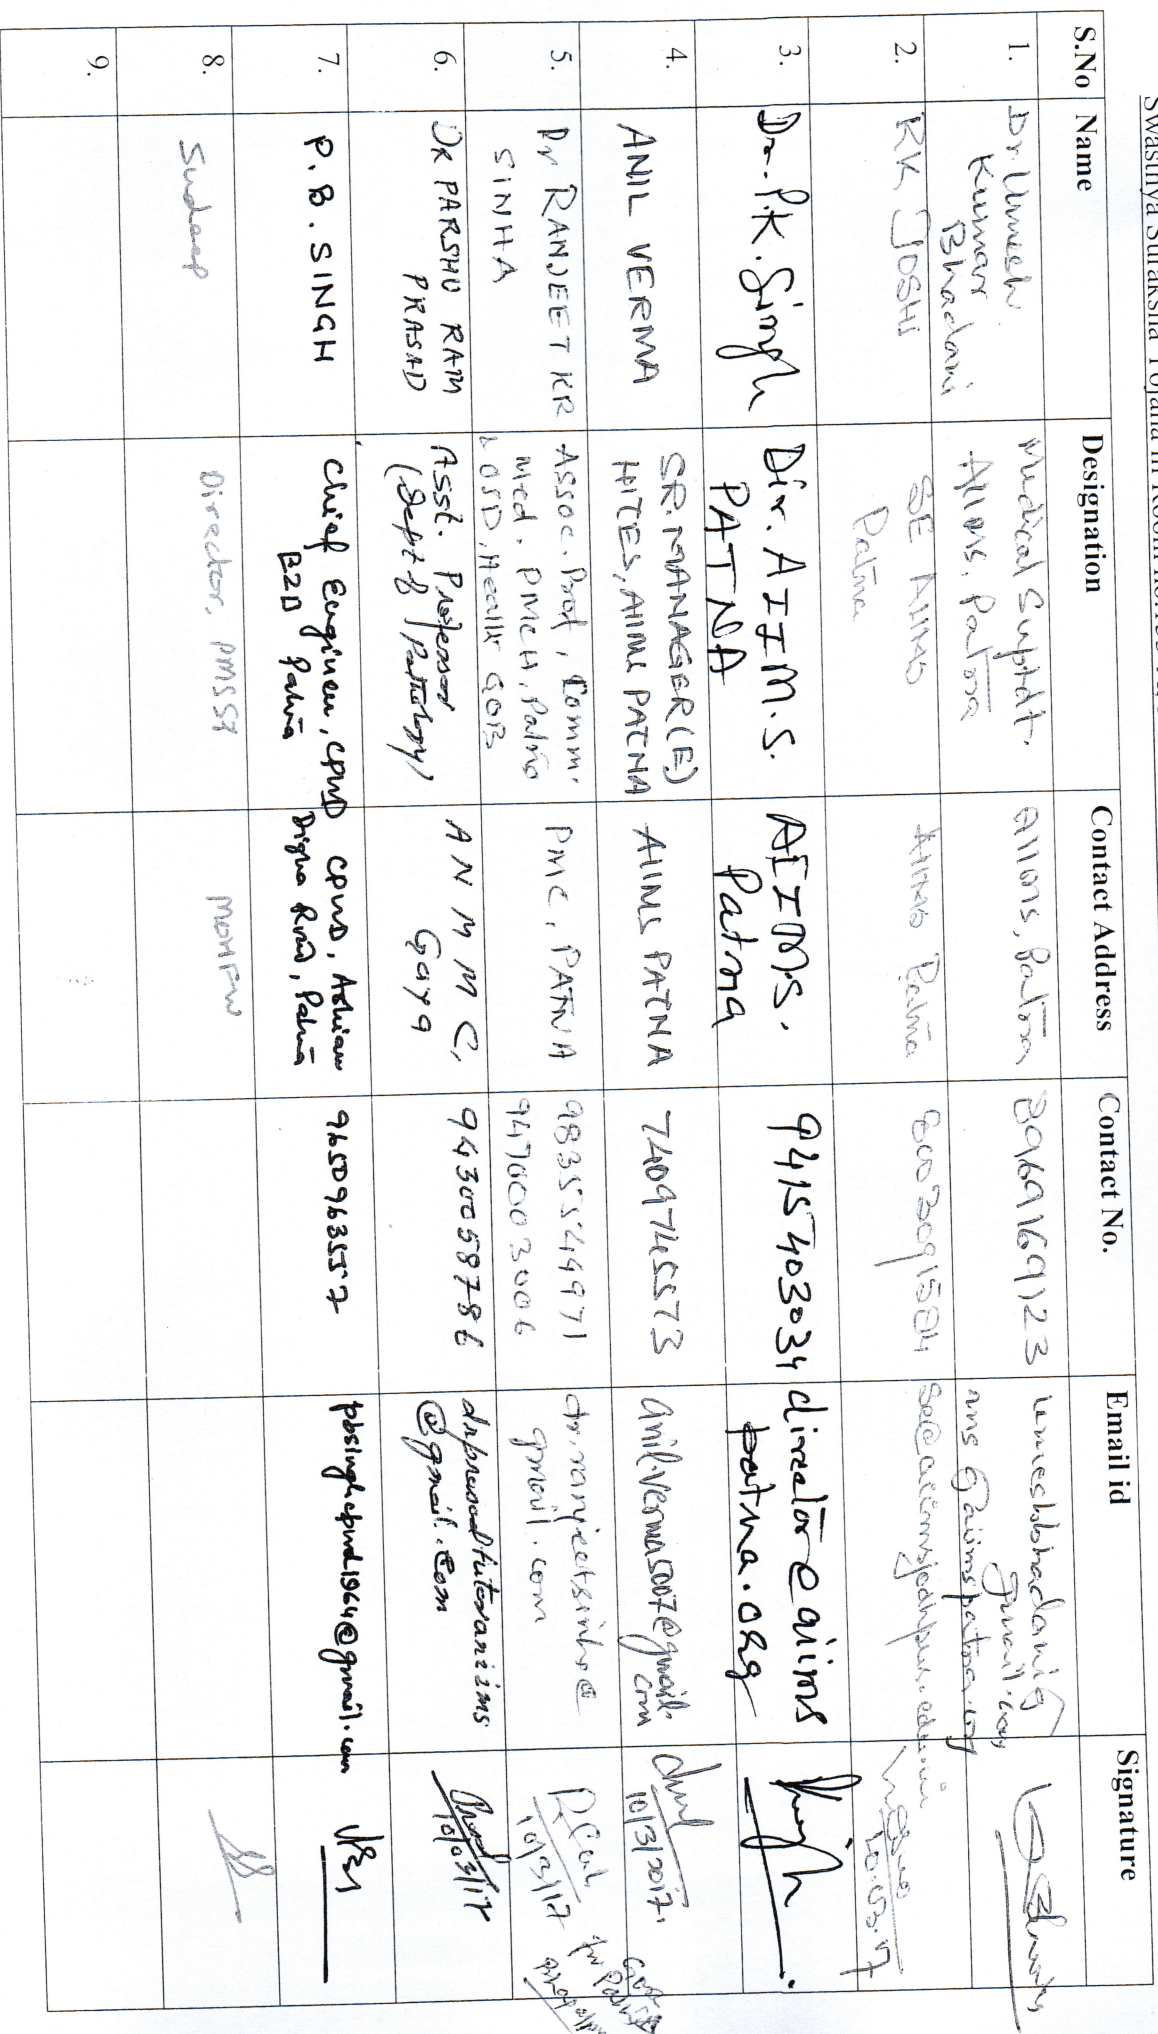 Swasthya Suraksha Yojana in Room no.
S.No Name Designation Contact Address Contact No. Email id Signature
1. Dr. Umesh Kumar Bhadani
Medical Suptdt. AIIMS, Patna
AIIMS, Patna
umeshbhadani@gmail.com
ms@aiimspatna.org
2. RK JOSHI
SE AIIMS Patna
AIIMS Patna
8003091584
se@aiimsjodhpur.edu.in
10.03.17
3. Dr. P.K. Singh
Dir. A.I.I.M.S. PATNA
AIIMS. Patna
9415403034
director@aiims
patna.org
4. ANIL VERMA
SR. MANAGER(E)
HITES, AIIMS PATNA
AIIMS PATNA
7409745573
anil.verma5007@gmail.
com
10/3/2017.
5. Dr RANJEET KR
SINHA
Assoc. Prof, Comm.
Med. PMCH, Patna
& OSD, Health GOB
PMC, PATNA
9835544971
9470003006
dr.ranjeetsinha@
gmail.com
10/3/17
6. DR PARSHU RAM
PRASAD
Asst. Professor
(Dept of Pathology)
A N M M C,
Gaya
9430058786
@gmail.com
10/03/17
7. P.B. SINGH
Chief Engineer, CPWD
BZD Patna
CPWD, Ashiana
Digha Road, Patna
9650963557
pbsinghcpwd1964@gmail.com
8. Sudeep
Director, PMSSY
MOHFW
9.